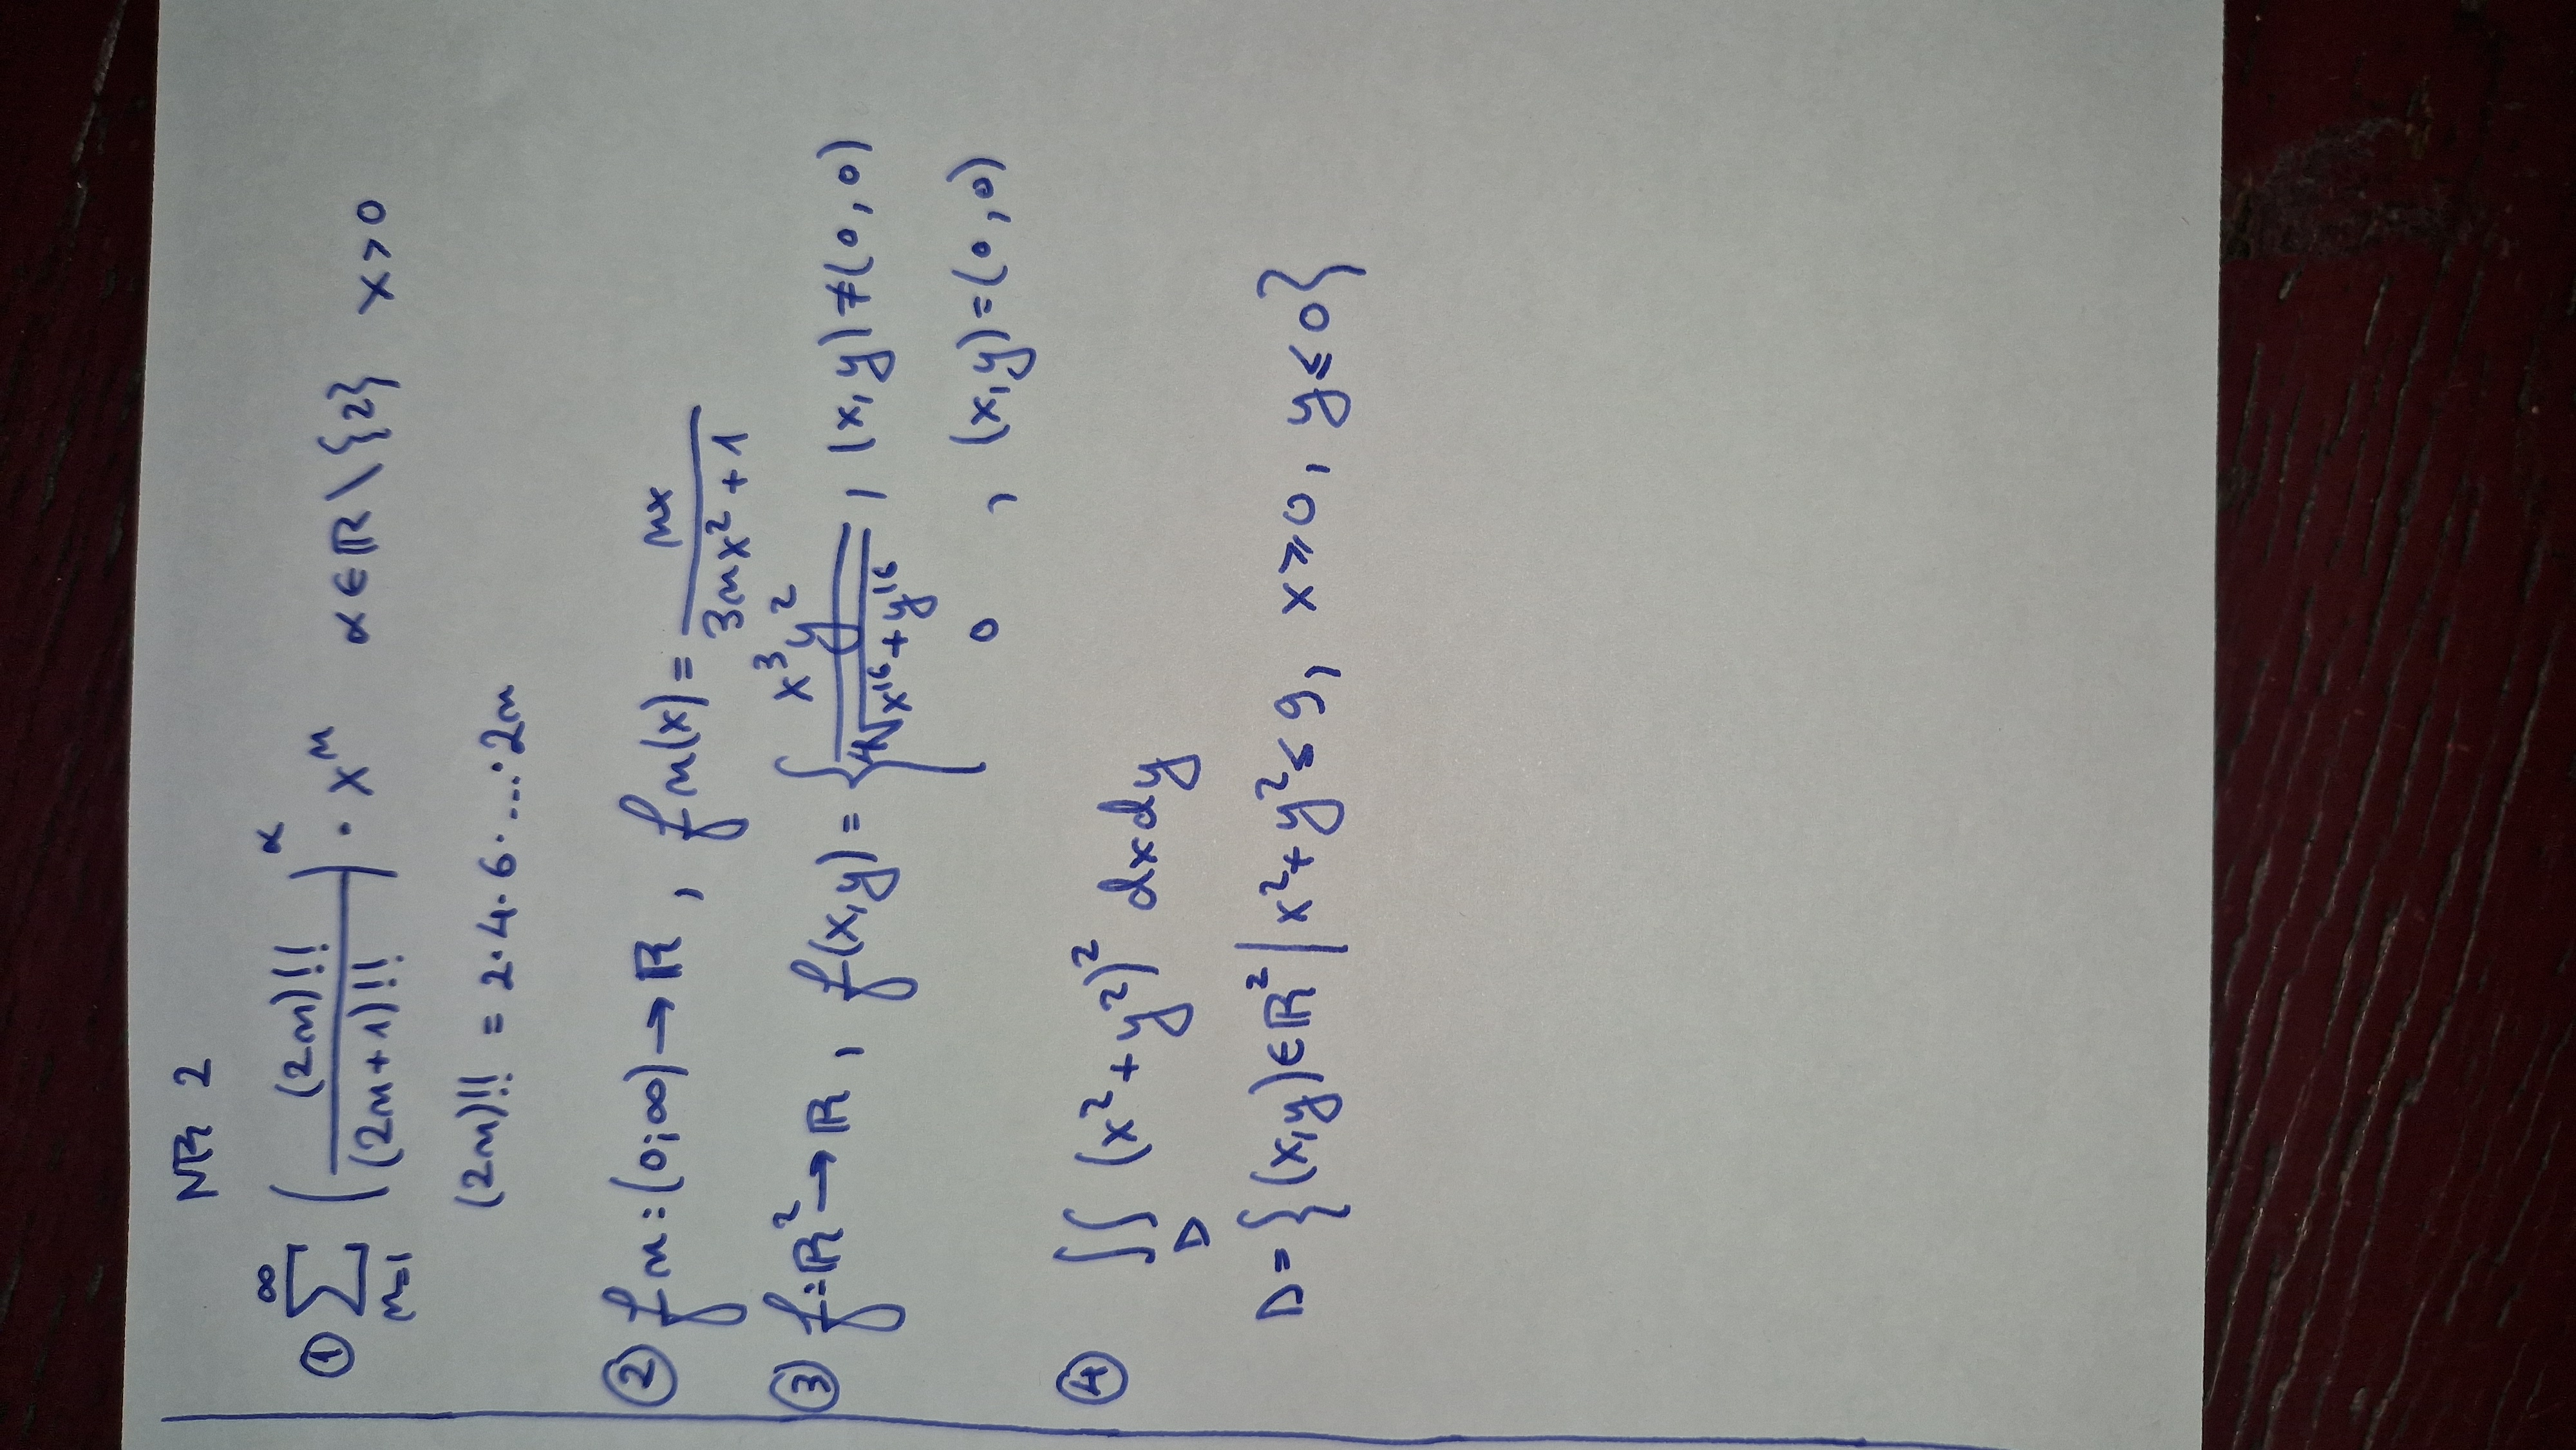 NR 2
① ∞∑n=1 ( (2n)!! / (2n+1)!! )^α · x^n   α∈ℝ\{2}   x>0
(2n)!! = 2·4·6·...·2n
② fn:(0;∞)→ℝ , fn(x)= nx / (3nx²+1)
③ f:ℝ²→ℝ , f(x,y)= { x³y² / ⁴√(x¹⁶+y¹⁶) , (x,y)≠(0,0)
0 , (x,y)=(0,0)
④ ∬D (x²+y²)² dxdy
D={(x,y)∈ℝ² | x²+y²≤9, x≥0, y≤0}